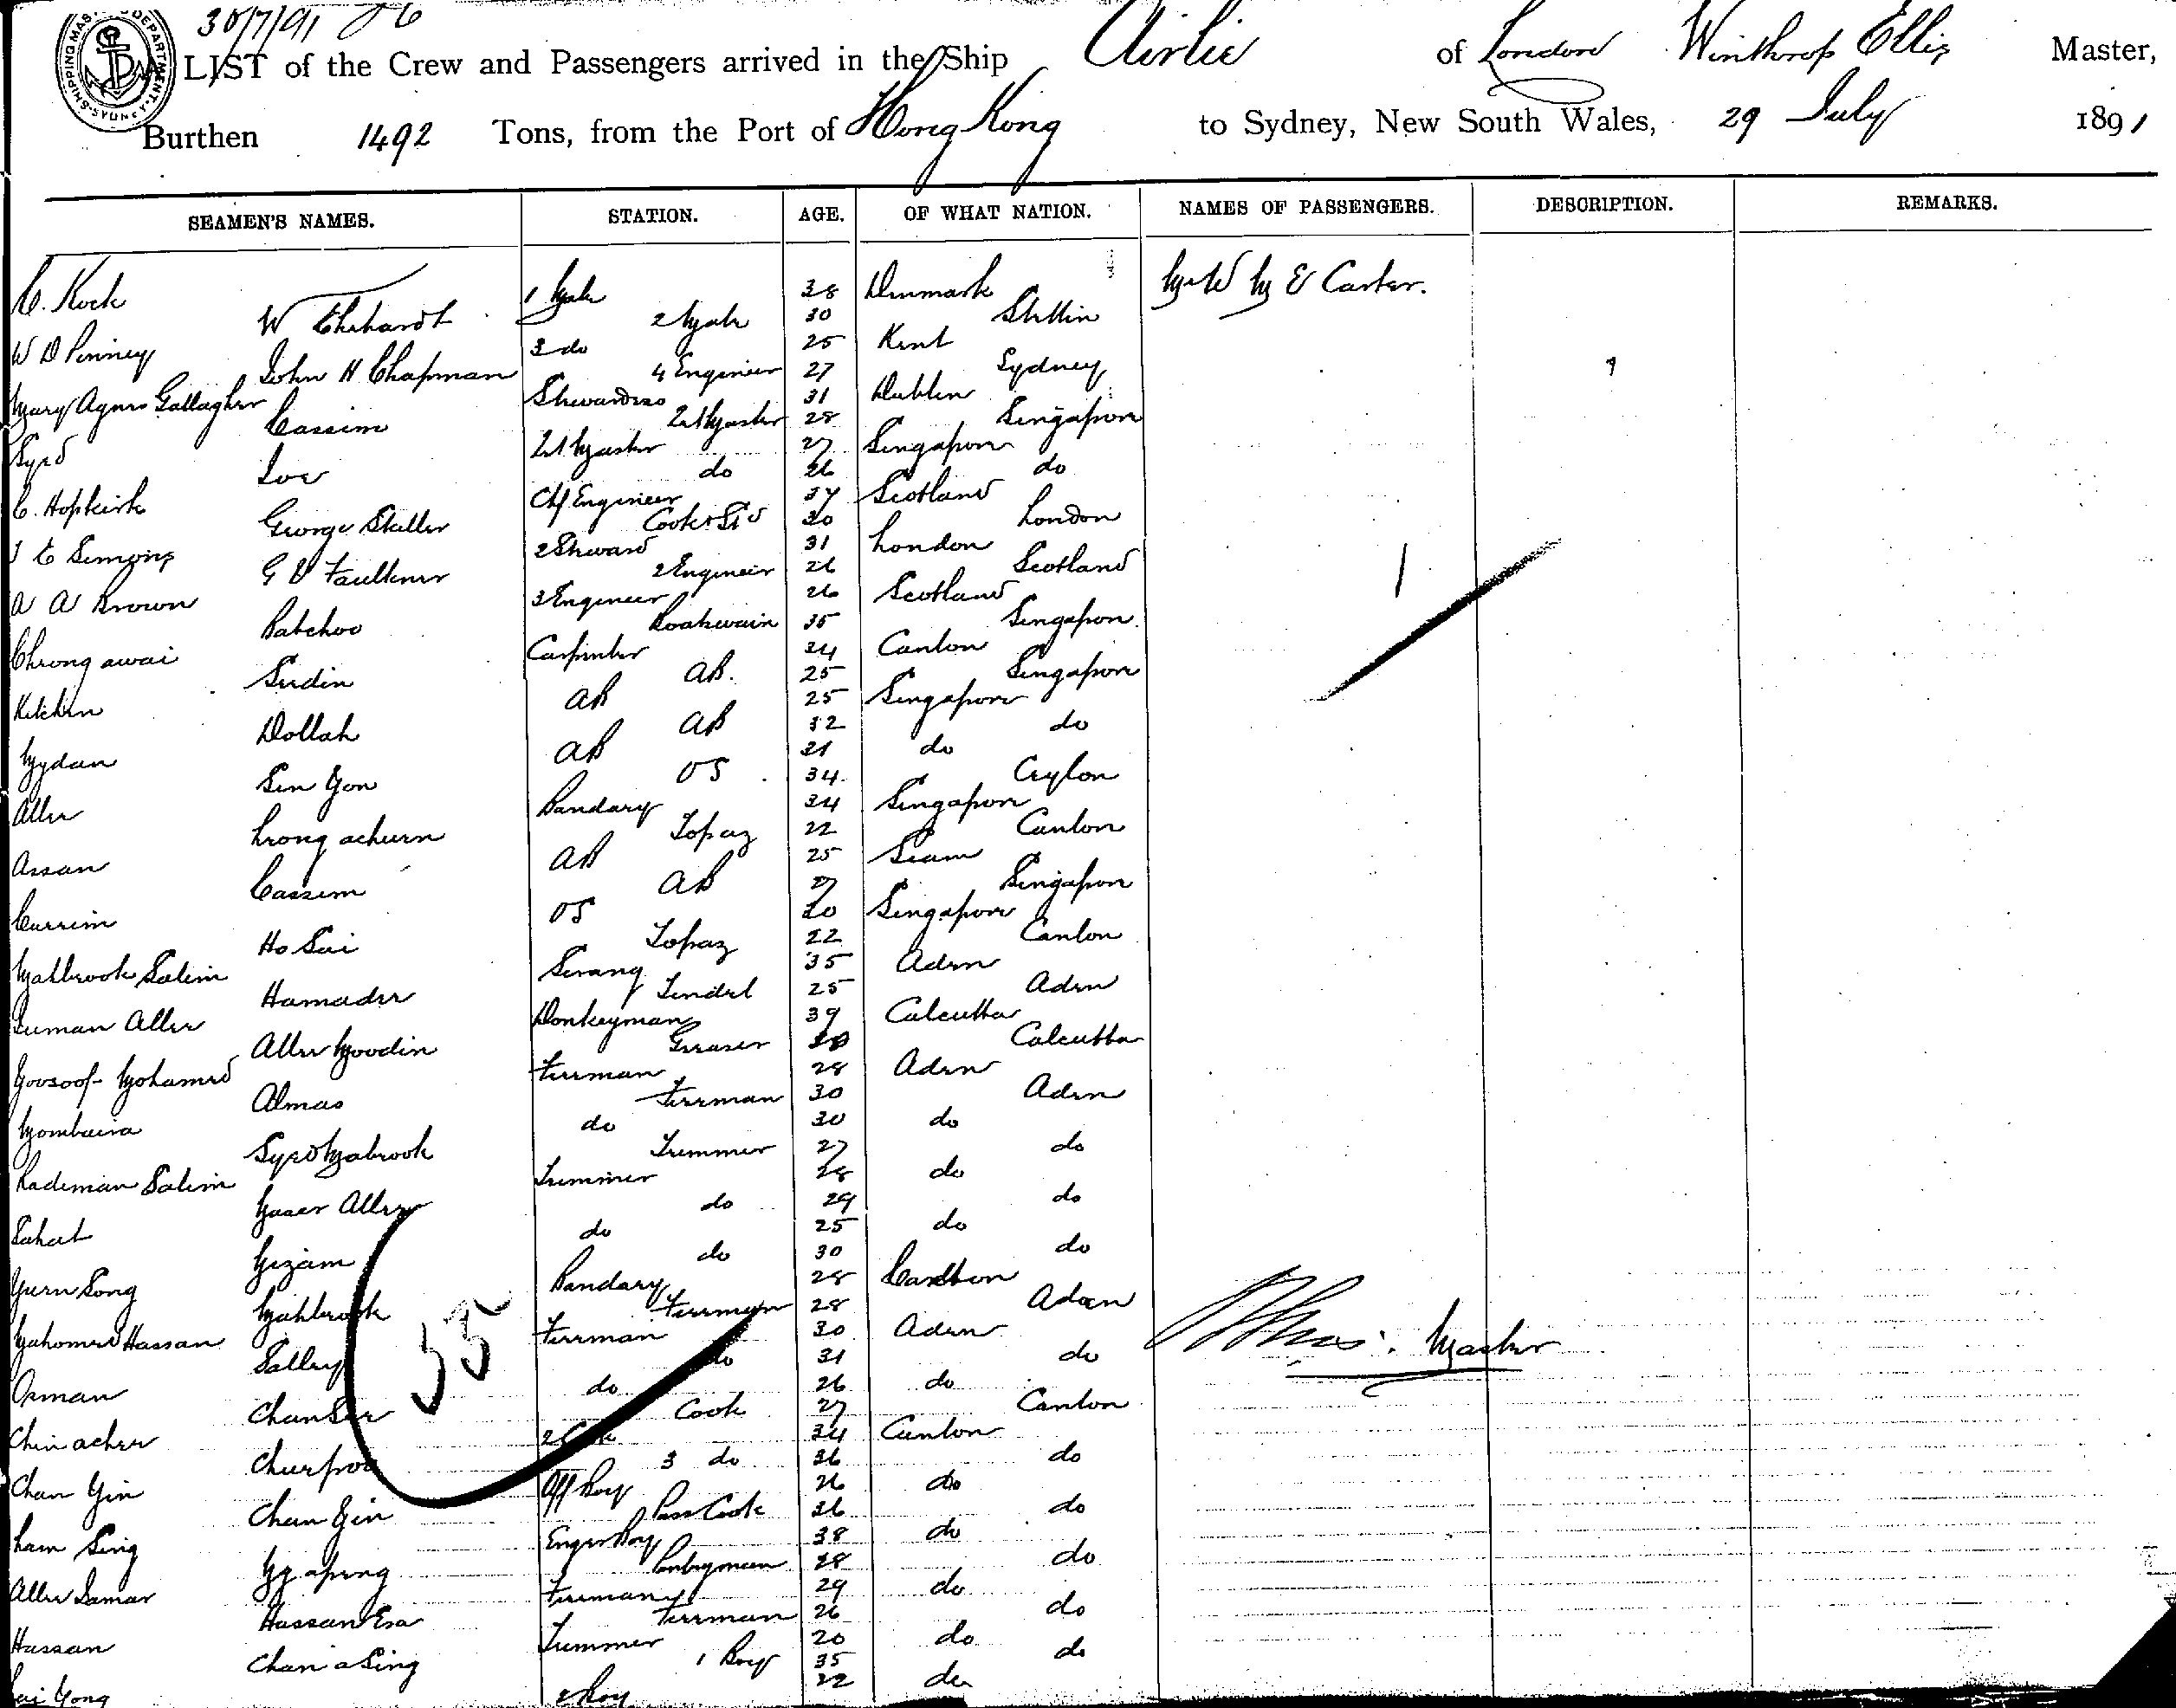 30/7/91
SHIPPING MASTER'S DEPARTMENT SYDNEY
LIST of the Crew and Passengers arrived in the Ship Airlie of London Winthrop Ellis Master,
Burthen 1492 Tons, from the Port of Hong Kong to Sydney, New South Wales, 29 July 1891
SEAMEN'S NAMES. STATION. AGE. OF WHAT NATION. NAMES OF PASSENGERS. DESCRIPTION. REMARKS.
C. Kock 1 Mate 38 Denmark Mr & Mrs E Carter.
W Ehrhardt 2 Mate 30 Stettin
W D Penney 3 do 25 Kent
John H Chapman 4 Engineer 27 Sydney
Mary Agnes Gallagher Stewardess 31 Dublin
Cassim 28 Singapore
Syed 27 Singapore
do 26 do
C. Hopkirk Chf Engineer 37 Scotland
George Statter Cook & Std 30 London
J E Simons 2 Steward 31 London
G V Faulkner 2 Engineer 26 Scotland
A A Brown 3 Engineer 26 Scotland
Batchoo Boatswain 35 Singapore
Chrong awai Carpenter 34 Canton
Sudin AB. 25 Singapore
Kitchin AB 25 Singapore
Dollah AB 32 do
Mydan AB 21 do
Sin Yon OS 34 Ceylon
Aller Bandary 34 Singapore
Lrong achurn Topaz 22 Canton
Assan AB 25 Siam
Cassim AB 27 Singapore
Currim OS 20 Singapore
Ho Sui Topaz 22 Canton
Mahbrook Salim Serang 35 Aden
Hamader Tindel 25 Aden
Suman Aller Donkeyman 39 Calcutta
Aller Moodin Greaser Calcutta
Yoosoof Mohamed Fireman 28 Aden
Almas Fireman 30 Aden
Mombaira do 30 do
Syed Mabrook Trimmer 27 do
Rademan Salim Trimmer 28 do
Yaser Aller do 29 do
Sahat do 25 do
Mizam do 30 do
Yurn Song Bandary 28 Canton
Mahbrook Fireman 28 Aden
Mahomed Hassan Fireman 30 Aden
Salley do 31 do
55
Master
Osman do 26 do
Chan Ser Cook 27 Canton
Chin acher 2 Cook 34 Canton
Churpoo 3 do 36 do
Chan Yin Off Boy 26 do
Chan Gin Pass Cook 36 do
Lam Sing Enger Boy 38 do
28 do
Aller Samar Fireman 29 do
Hassan Esa Fireman 26 do
Hassan Trimmer 20 do
Chan a Sing 1 Boy 35 do
Yong 2 Boy 22 do